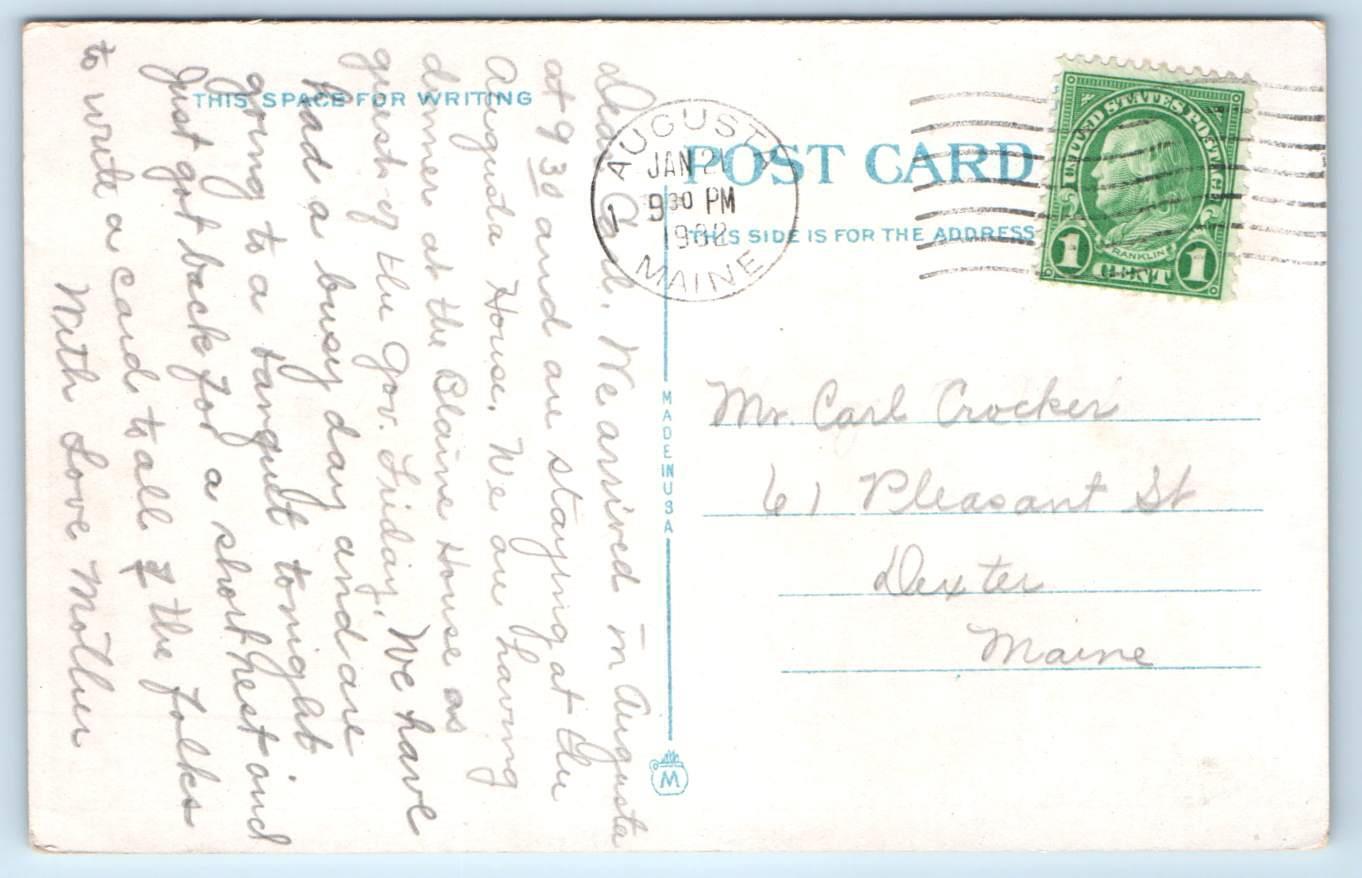 THIS SPACE FOR WRITING
Dear Carl. We arrived in Augusta
at 9 30 and are staying at the
Augusta House. We are having
dinner at the Blaine House as
guests of the Gov. Friday. We have
had a busy day and are
going to a banquet tonight.
Just got back for a short rest and
to write a card to all of the folks
With Love Mother
AUGUSTA
JAN 2
9 30 PM
1932
MAINE
1
POST CARD
THIS SIDE IS FOR THE ADDRESS
UNITED STATES POSTAGE
FRANKLIN
1 CENT 1
MADE IN USA
M
Mr. Carl Crocker
61 Pleasant St
Dexter
Maine